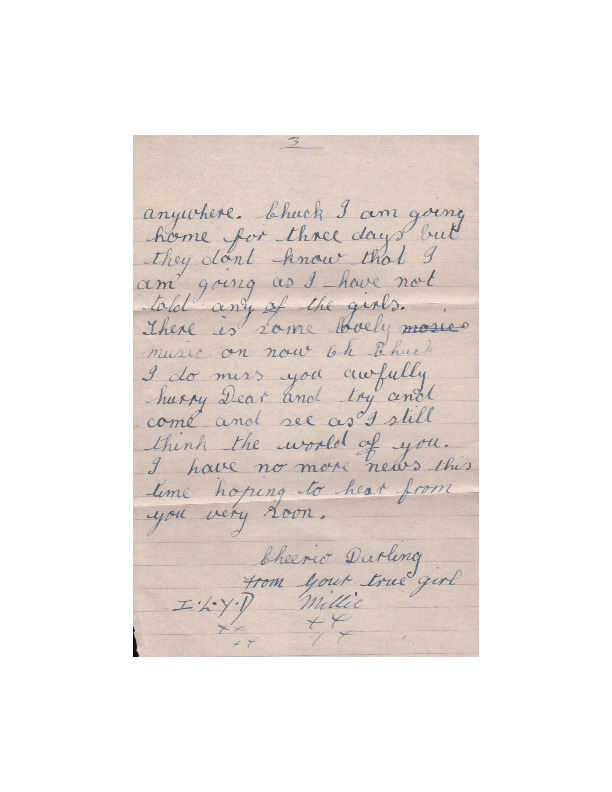 3
anywhere. Chuck I am going
home for three days but
they dont know that I
am going as I have not
told any of the girls.
There is some lovely mosie
music on now Oh Chuck
I do miss you awfully
hurry Dear and try and
come and see as I still
think the world of you.
I have no more news this
time hoping to hear from
you very soon.
Cheerio Darling
From Your true girl
I.L.Y.D Millie
++ ++
++ / +